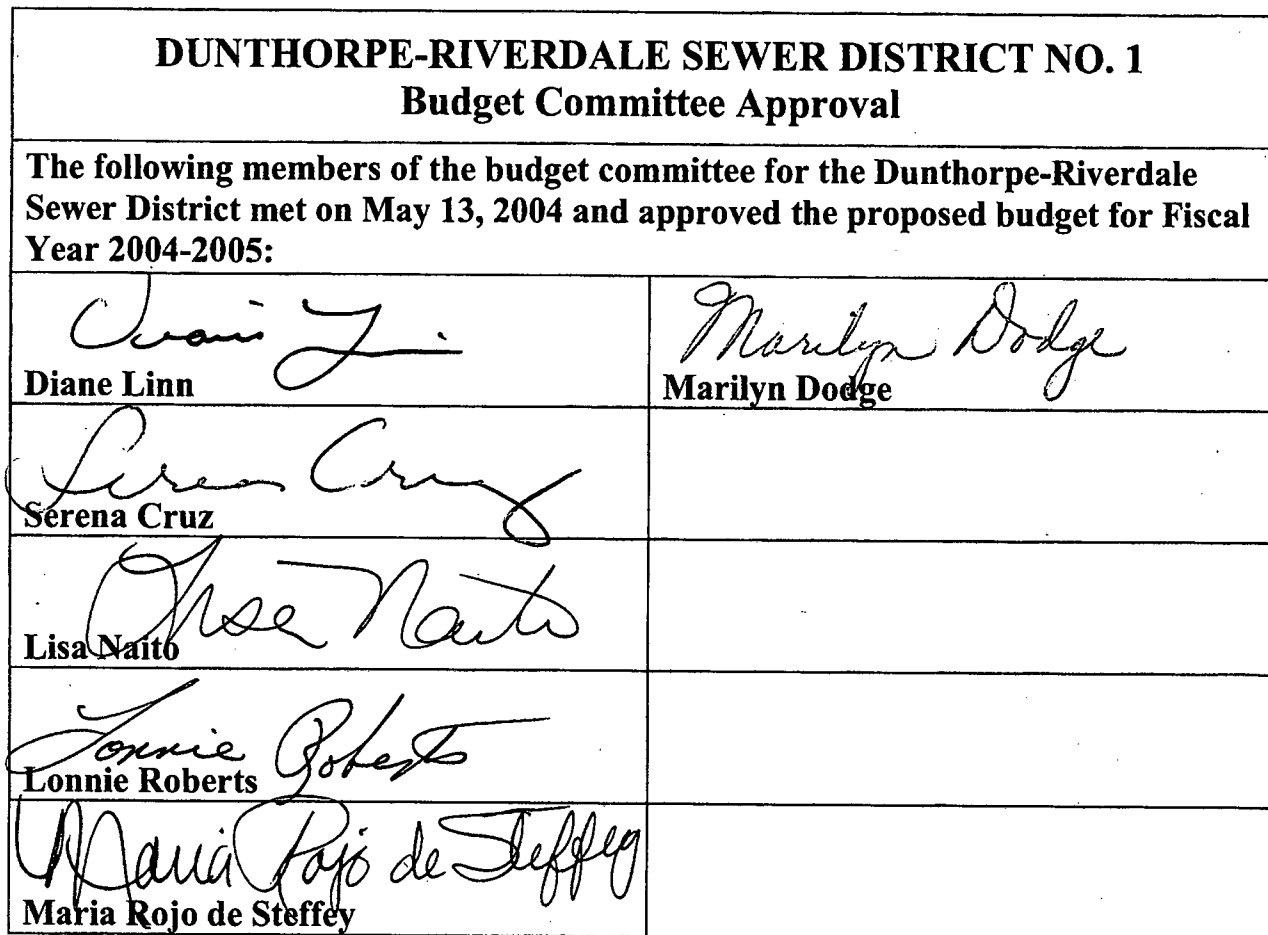 DUNTHORPE-RIVERDALE SEWER DISTRICT NO. 1
Budget Committee Approval
The following members of the budget committee for the Dunthorpe-Riverdale
Sewer District met on May 13, 2004 and approved the proposed budget for Fiscal
Year 2004-2005:
Diane Linn
Marilyn Dodge
Marilyn Dodge
Serena Cruz
Serena Cruz
Lisa Naito
Lisa Naito
Lonnie Roberts
Lonnie Roberts
Maria Rojo de Steffey
Maria Rojo de Steffey